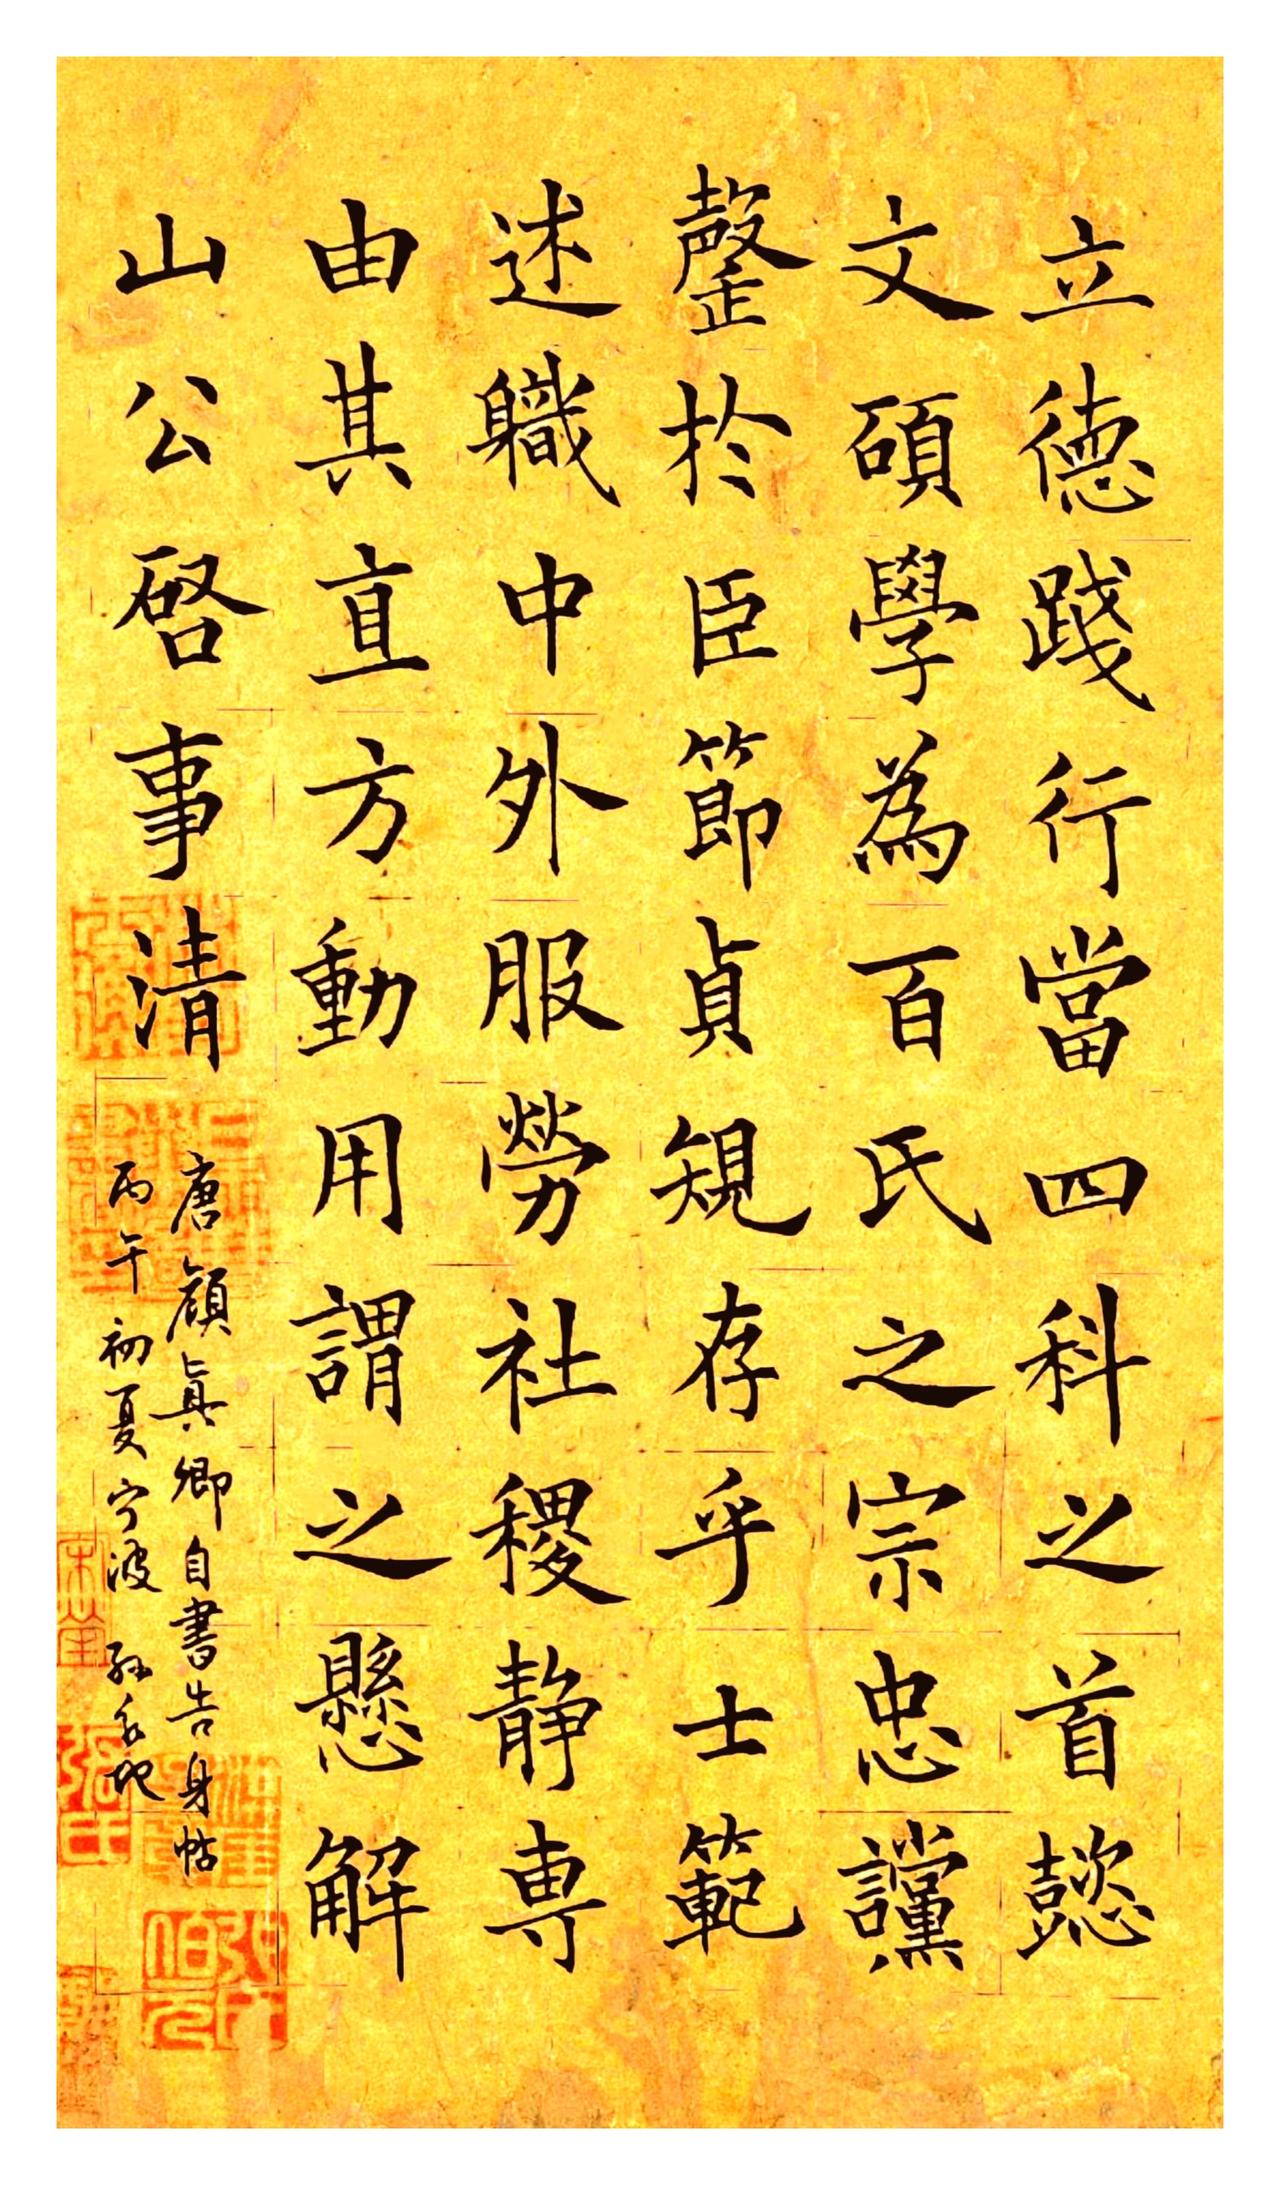 立德踐行當四科之首懿
文碩學為百氏之宗忠讜
罄於臣節貞規存乎士範
述軄中外服勞社稷静専
由其直方動用謂之懸解
山公啓事清
唐顔真卿自書告身帖
丙午初夏宁波